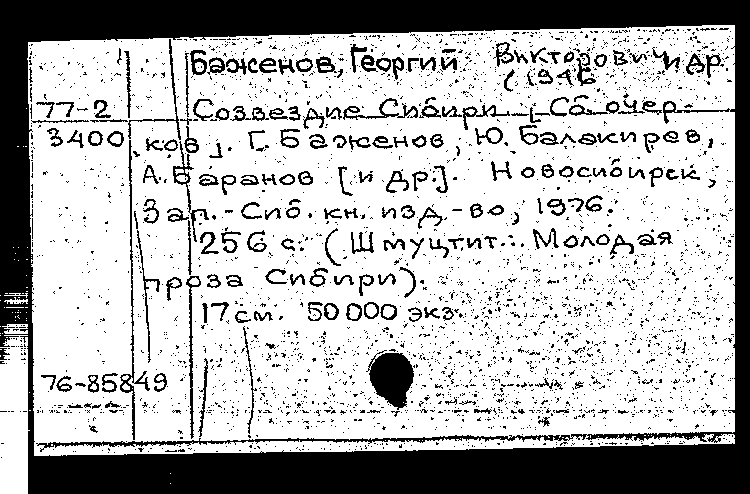 Баженов, Георгий Викторович и др.
(1946
77-2 Созвездие Сибири [Сб. очер-
3400 ков]. Г. Баженов, Ю. Балакирев,
А. Баранов [и др.]. Новосибирск,
Зап.-Сиб. кн. изд-во, 1976.
256 с. (Шмуцтит.: Молодая
проза Сибири).
17 см. 50 000 экз.
76-85849